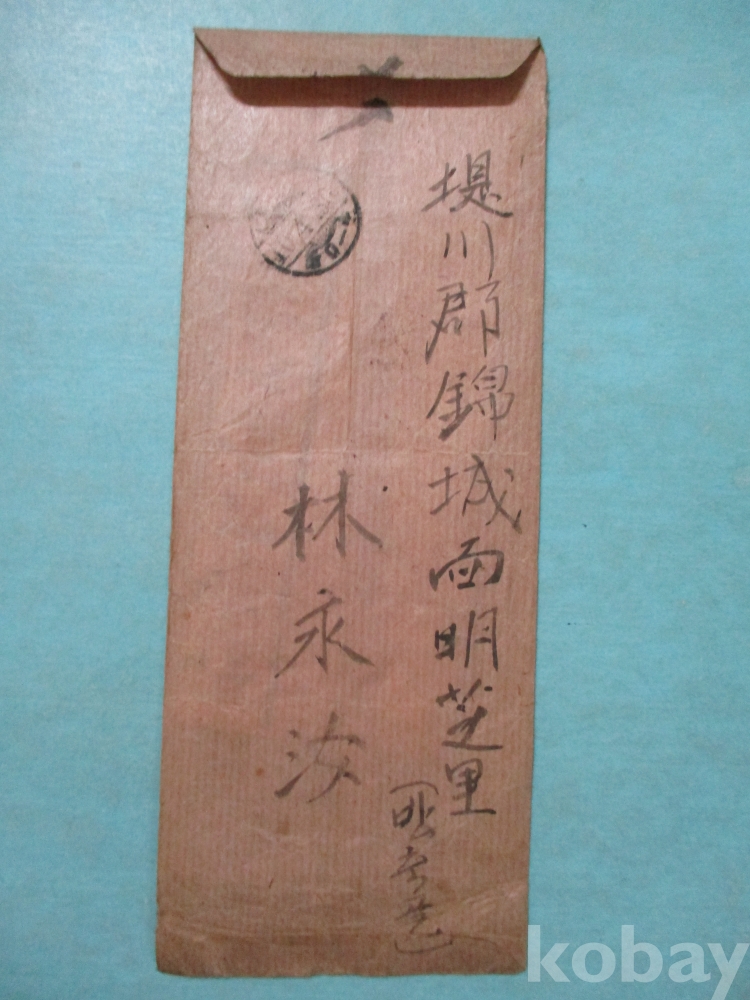 堤川郡錦城面明芝里
林永汝
kobay